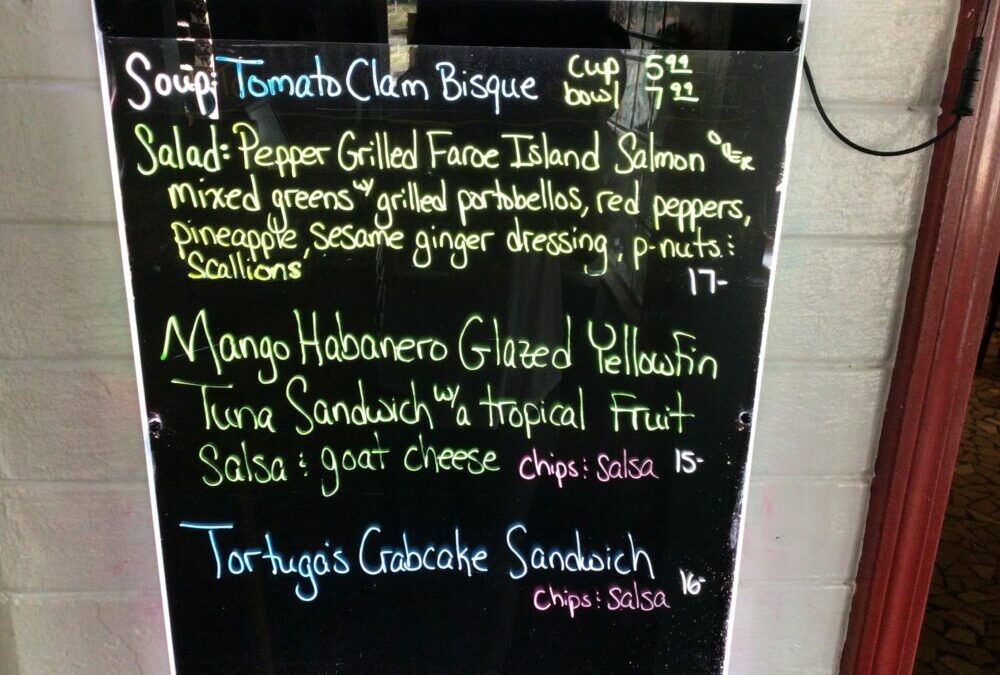 Soup: Tomato Clam Bisque cup 5.99
bowl 7.99
Salad: Pepper Grilled Faroe Island Salmon OVER
mixed greens w/ grilled portobellos, red peppers,
pineapple, sesame ginger dressing, p-nuts :
scallions
17-
Mango Habanero Glazed Yellowfin
Tuna Sandwich w/ a tropical Fruit
Salsa : goat cheese chips : salsa 15-
Tortuga's Crabcake Sandwich
chips : salsa 16-